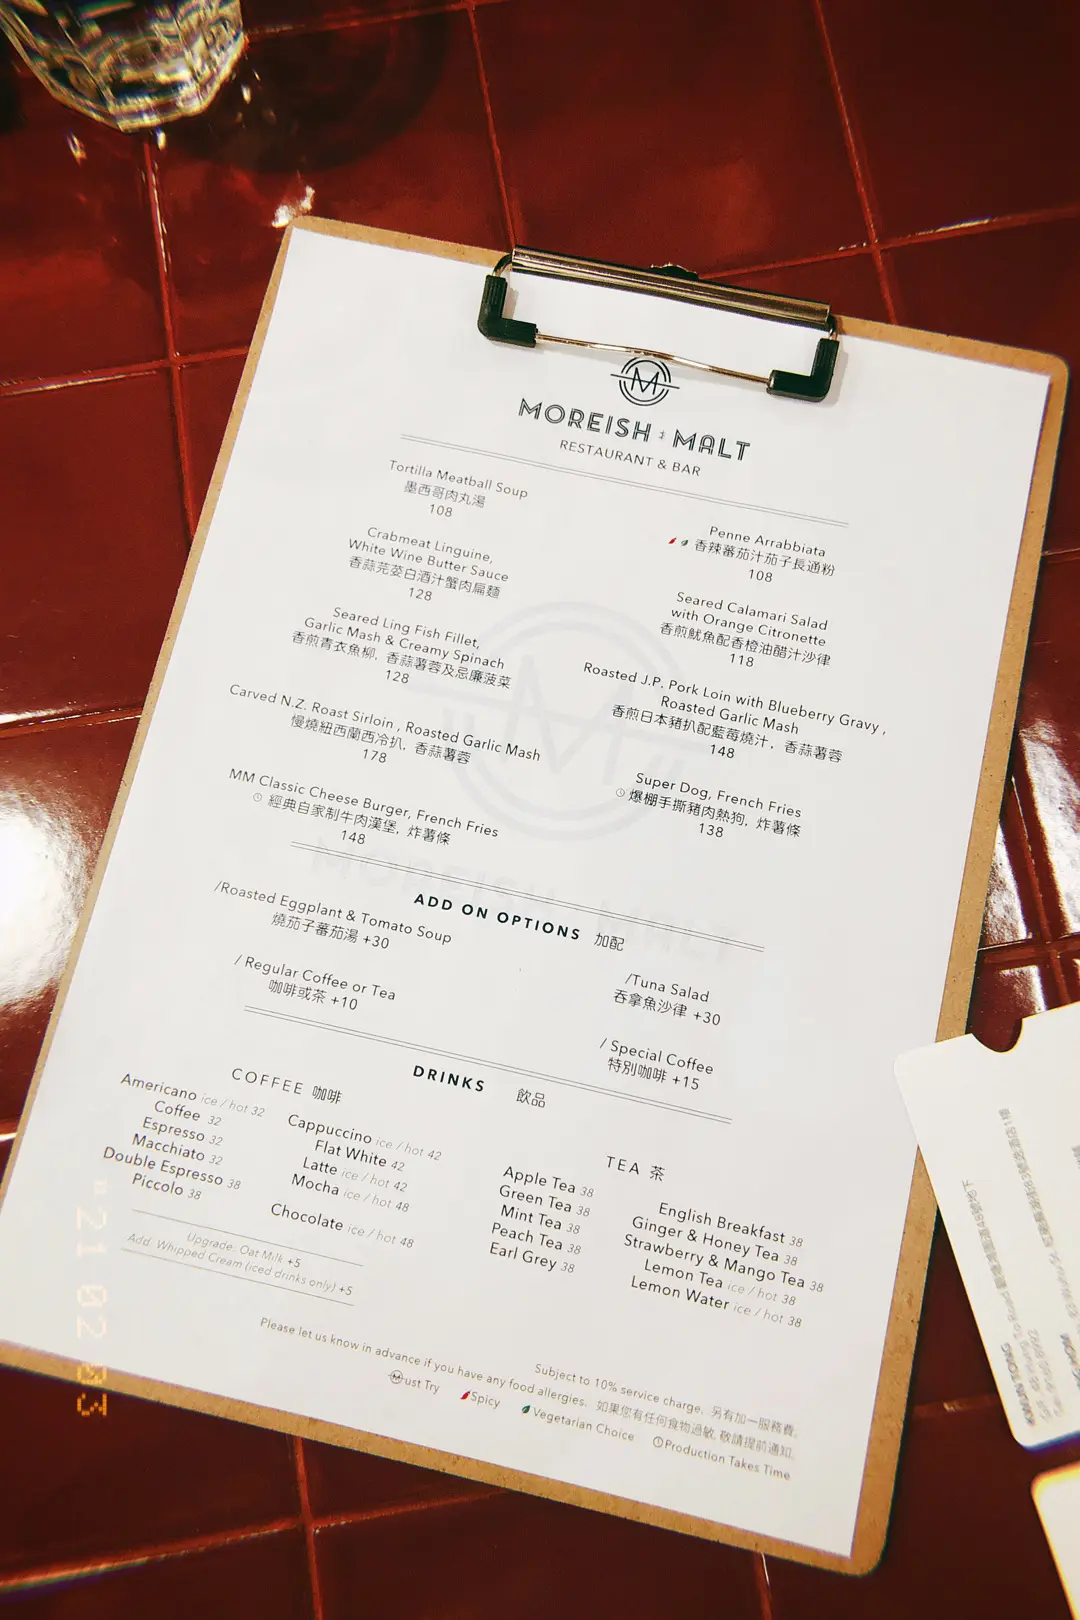 M
MOREISH & MALT
RESTAURANT & BAR
Tortilla Meatball Soup
墨西哥肉丸湯
108
Crabmeat Linguine,
White Wine Butter Sauce
香蒜芫荽白酒汁蟹肉扁麵
128
Seared Ling Fish Fillet,
Garlic Mash & Creamy Spinach
香煎青衣魚柳, 香蒜薯蓉及忌廉菠菜
128
Carved N.Z. Roast Sirloin , Roasted Garlic Mash
慢燒紐西蘭西冷扒, 香蒜薯蓉
178
MM Classic Cheese Burger, French Fries
經典自家制牛肉漢堡, 炸薯條
148
Penne Arrabbiata
香辣蕃茄汁茄子長通粉
108
Seared Calamari Salad
with Orange Citronette
香煎魷魚配香橙油醋汁沙律
118
Roasted J.P. Pork Loin with Blueberry Gravy ,
Roasted Garlic Mash
香煎日本豬扒配藍莓燒汁, 香蒜薯蓉
148
Super Dog, French Fries
爆棚手撕豬肉熱狗, 炸薯條
138
ADD ON OPTIONS 加配
/Roasted Eggplant & Tomato Soup
燒茄子蕃茄湯 +30
/ Regular Coffee or Tea
咖啡或茶 +10
/Tuna Salad
吞拿魚沙律 +30
/ Special Coffee
特別咖啡 +15
DRINKS 飲品
COFFEE 咖啡
Americano ice / hot 32
Coffee 32
Espresso 32
Macchiato 32
Double Espresso 38
Piccolo 38
Cappuccino ice / hot 42
Flat White 42
Latte ice / hot 42
Mocha ice / hot 48
Chocolate ice / hot 48
Upgrade: Oat Milk +5
Add: Whipped Cream (iced drinks only) +5
TEA 茶
Apple Tea 38
Green Tea 38
Mint Tea 38
Peach Tea 38
Earl Grey 38
English Breakfast 38
Ginger & Honey Tea 38
Strawberry & Mango Tea 38
Lemon Tea ice / hot 38
Lemon Water ice / hot 38
Subject to 10% service charge. 另有加一服務費.
Please let us know in advance if you have any food allergies. 如果您有任何食物過敏, 敬請提前通知.
Must Try Spicy Vegetarian Choice Production Takes Time
"21 02 03
KWUN TONG